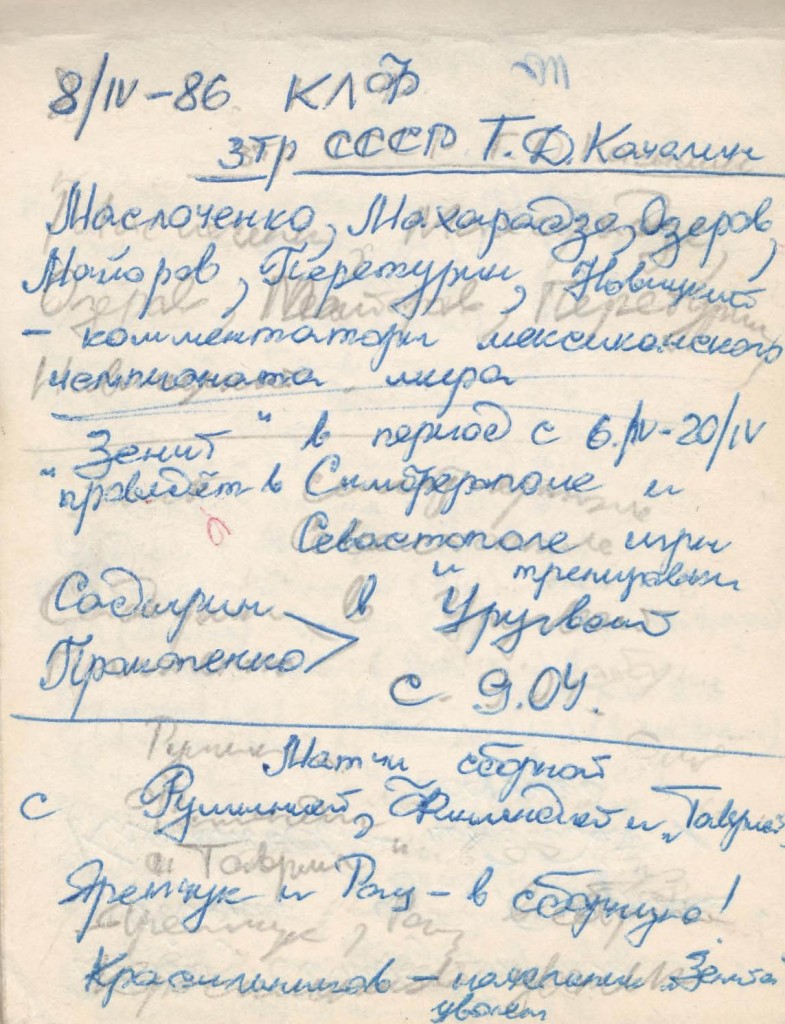 8/IV-86 КЛФ
ЗТР СССР Г.Д. Качалин
Маслаченко, Махарадзе, Озеров,
Майоров, Перетурин, Новицкий
- комментаторы мексиканского
чемпионата мира
"Зенит" в период с 6/IV-20/IV
проведёт в Симферополе и
Севастополе игры
и тренировки
Садырин
Прокопенко > в Уругвай
с 9.04.
Матчи сборной
с Румынией, Финляндией и "Таврией"
Яремчук и Рац - в сборную!
Красильников - начальник "Зенита"
уволен